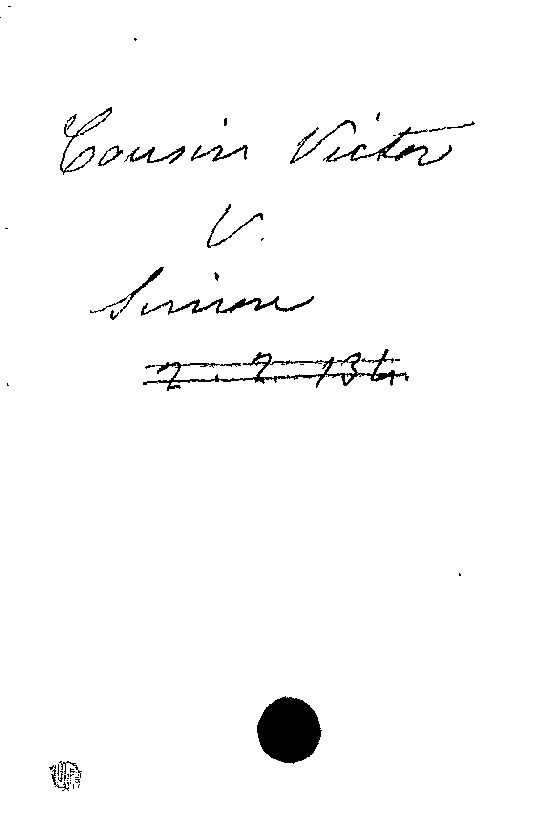 Cousin Victor
V.
Simon
2. 2. 134.